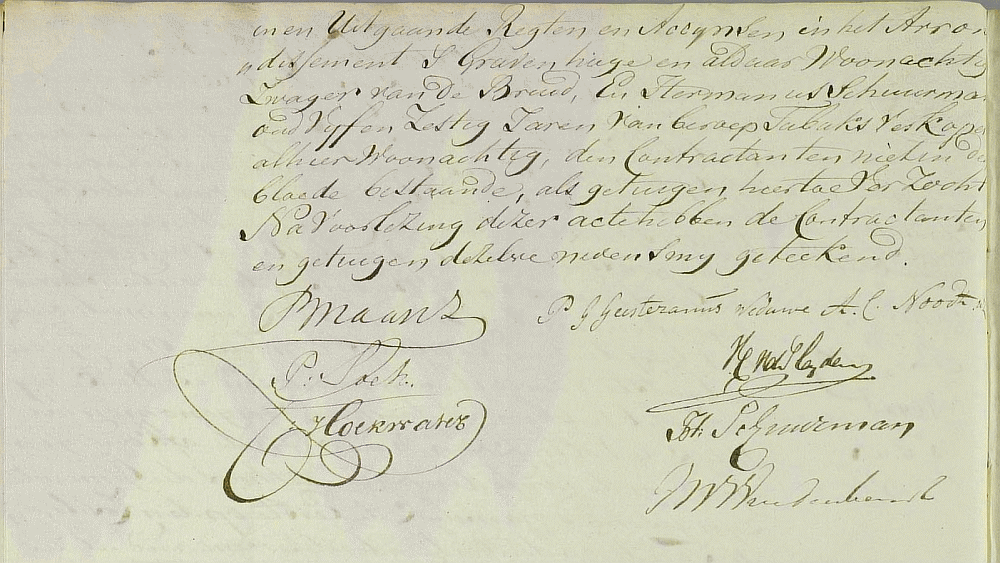 in en Uitgaande Regten en Accynsen, in het Arron
„dissement S Gravenhage en aldaar Woonachtig
Zwager van de Bruid, En Hermanus Schuurman
oud Vyf en Zestig Jaren van beroep Tabaks Verkoper
alhier Woonachtig, den Contractanten niet in den
bloede bestaande, als getuigen hiertoe Verzocht
Na Voorlezing dezer acte hebben de Contractanten
en getuigen dezelve nevens my geteekend.
P Maans
P J Geesteranus weduwe A. C. Noodt
P. Soek.
H. Schuurman